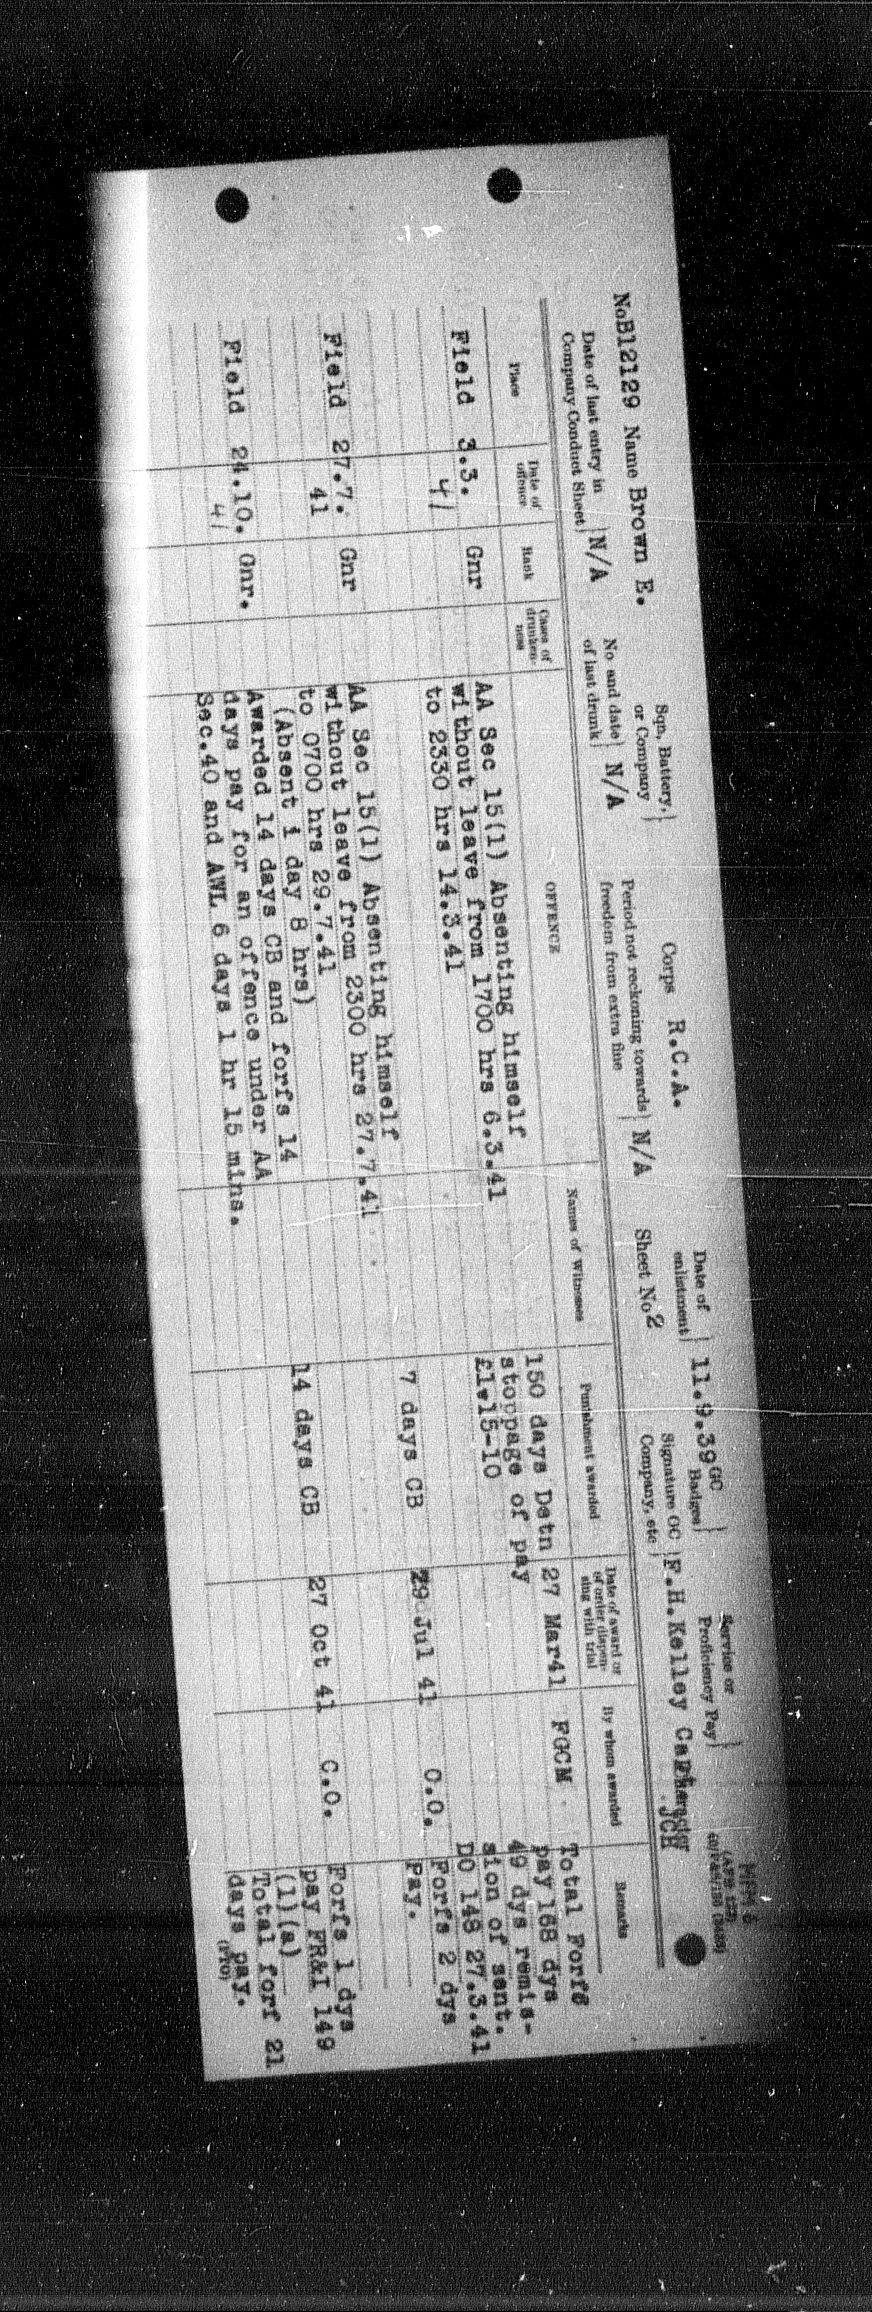 MFM 6
(AFB 122)
Sqn, Battery, or Company
Corps R.C.A.
Date of enlistment 11.9.39
GC Badges
Service or Proficiency Pay
NoB12129 Name Brown E.
Date of last entry in Company Conduct Sheet N/A
No and date of last drunk N/A
Period not reckoning towards freedom from extra fine N/A
Sheet No 2
Signature OC Company, etc F.H.Kelley
JCH
Place
Date of offence
Rank
Cases of drunkenness
OFFENCE
Names of Witnesses
Punishment awarded
Date of award or of order dispensing with trial
By whom awarded
Remarks
Field 3.3. 41 Gnr
AA Sec 15(1) Absenting himself
without leave from 1700 hrs 6.3.41
to 2330 hrs 14.3.41
150 days Detn
stoppage of pay
£1-15-10
27 Mar41
FGCM
Total Forfs
pay 168 dys
49 dys remis-
sion of sent.
DO 148 27.3.41
Field 27.7. 41 Gnr
AA Sec 15(1) Absenting himself
without leave from 2300 hrs 27.7.41
to 0700 hrs 29.7.41
(Absent 1 day 8 hrs)
7 days CB
29 Jul 41
C.O.
Forfs 2 dys
Pay.
Field 24.10. 41 Gnr.
Awarded 14 days CB and forfs 14
days pay for an offence under AA
Sec.40 and AWL 6 days 1 hr 15 mins.
14 days CB
27 Oct 41
C.O.
Forfs 1 dys
pay FR&I 149
(1)(a)
Total forf 21
days pay.
(PTO)